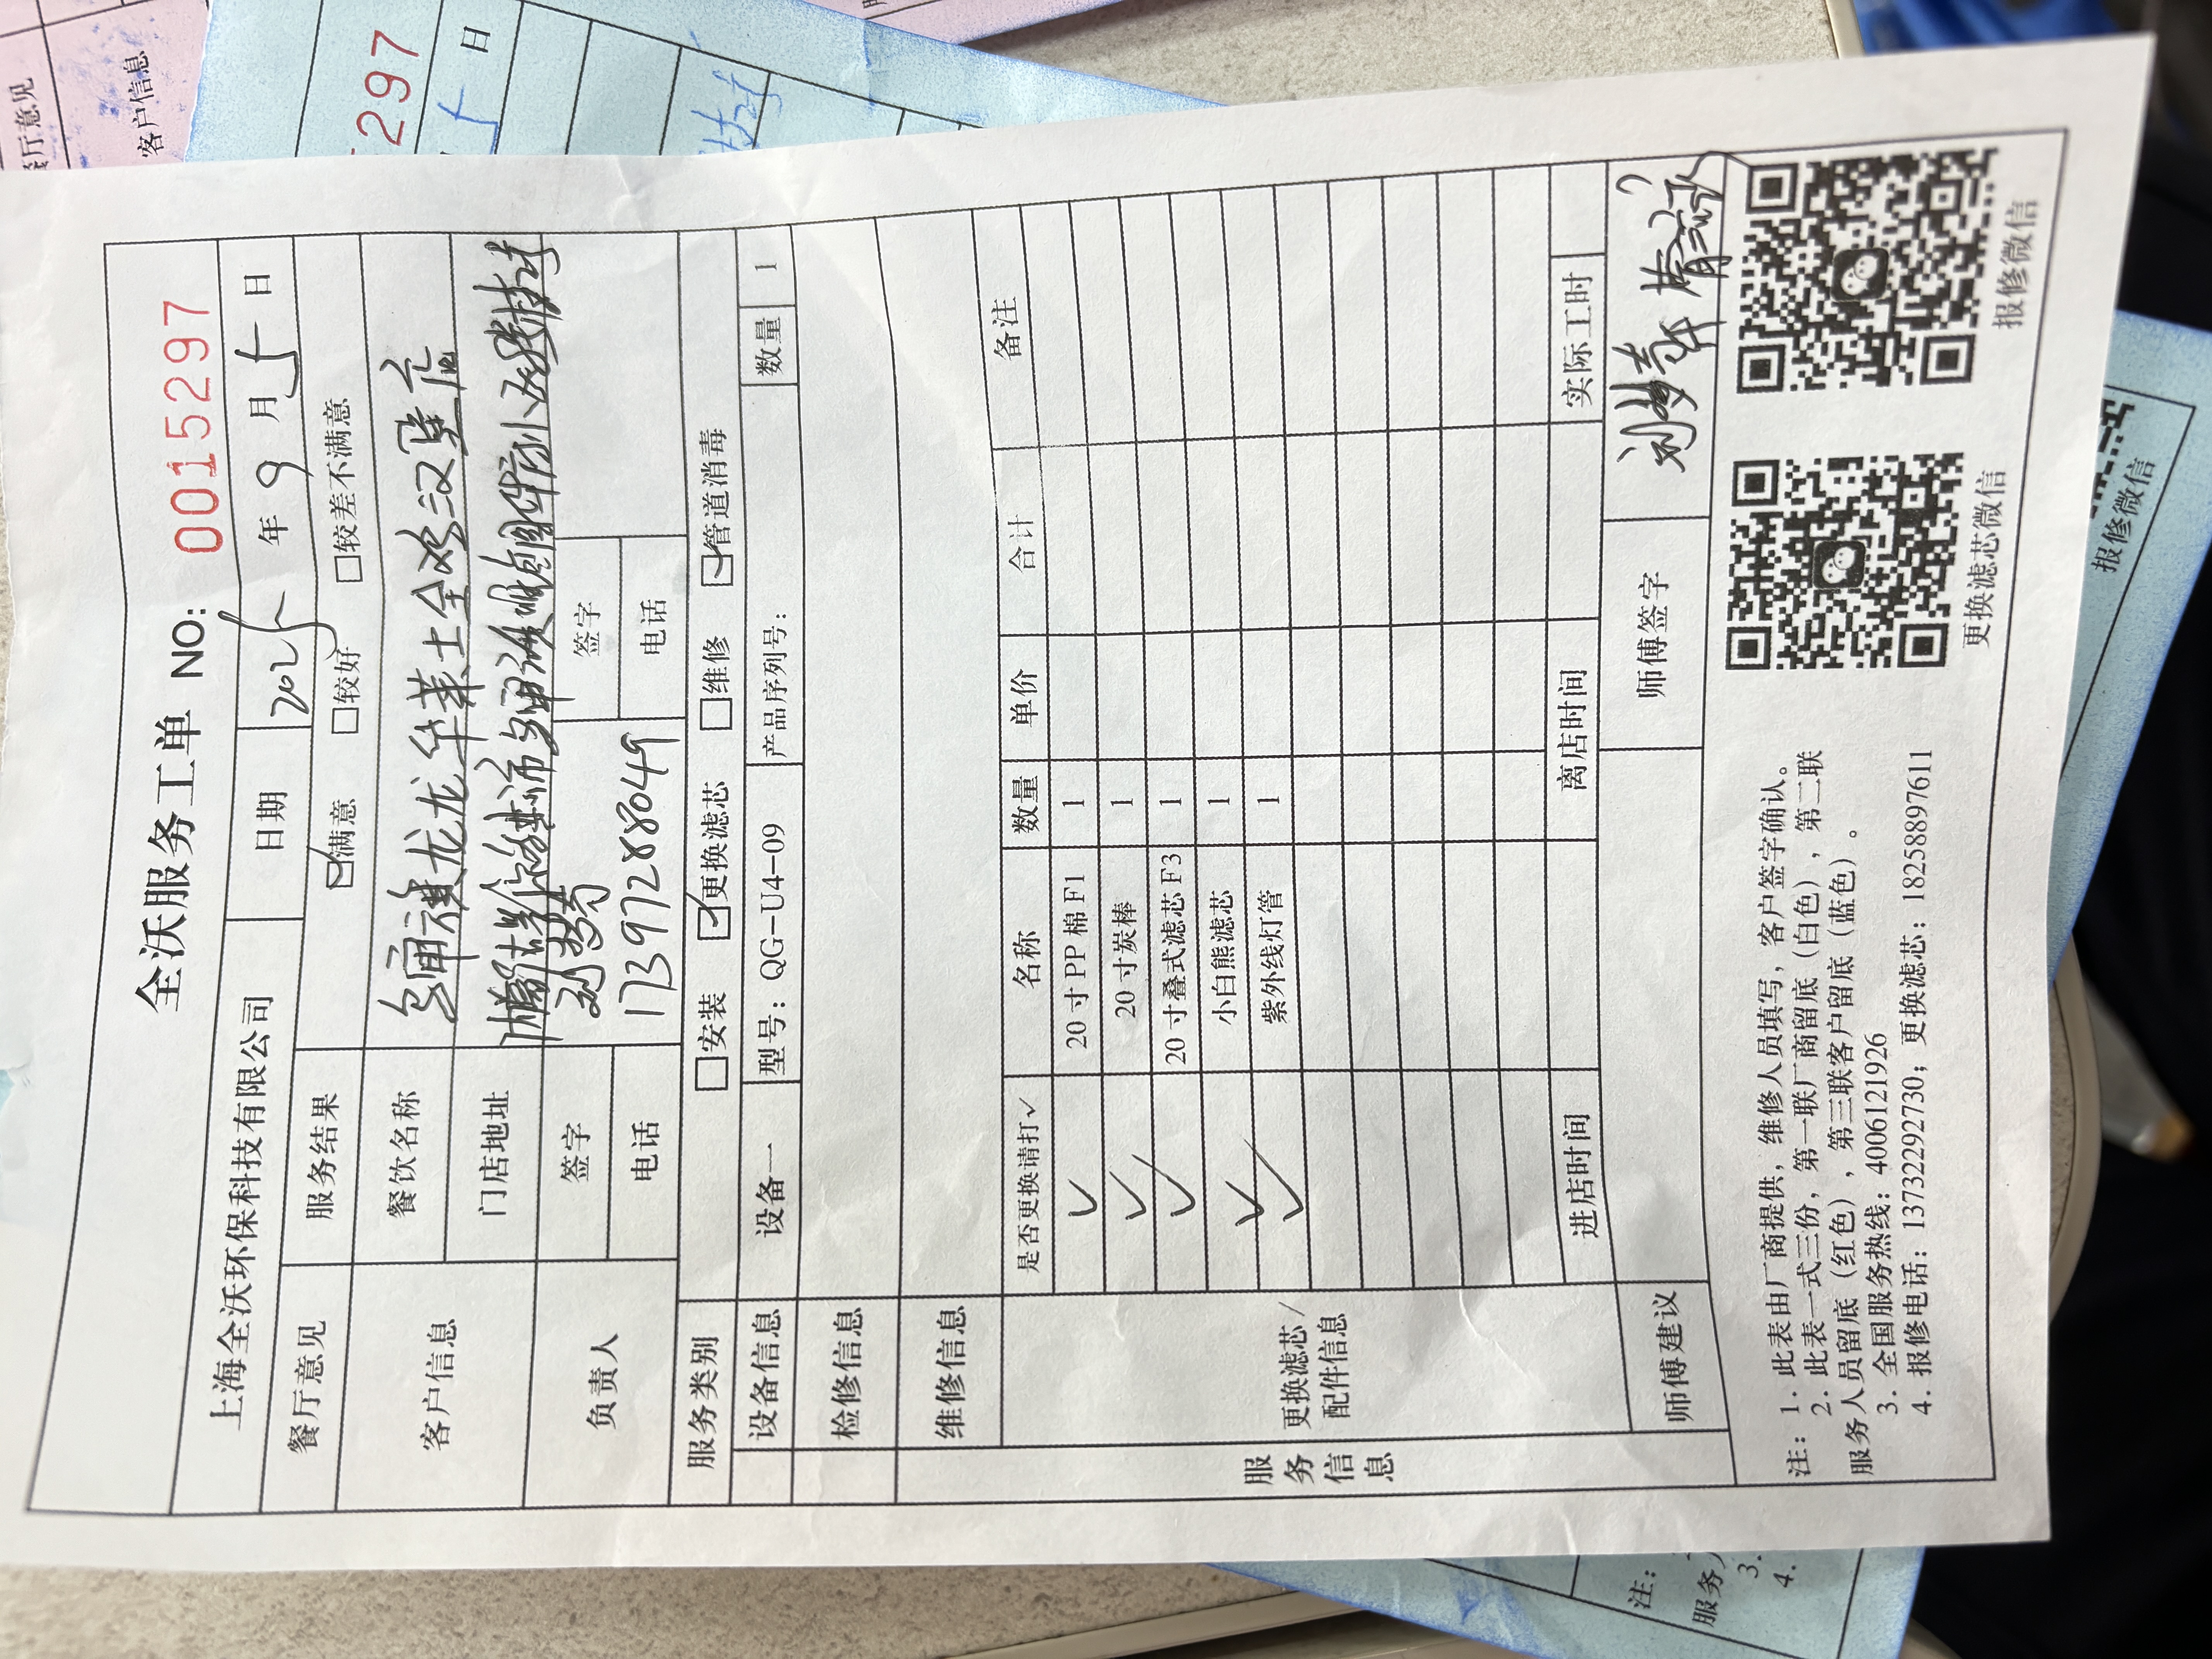 全沃服务工单 NO: 0015297
上海全沃环保科技有限公司 日期 2025 年 9 月 5 日
餐厅意见 服务结果 ☑满意 □较好 □较差不满意
客户信息 餐饮名称 龙华莱士全 汉堡店
门店地址
负责人 签字 签字
电话 17397288049 电话
服务类别 □安装 ☑更换滤芯 □维修 ☑管道消毒
设备信息 设备一 型号：QG-U4-09 产品序列号： 数量 1
检修信息
维修信息
服务信息
更换滤芯/配件信息
是否更换请打✓ 名称 数量 单价 合计 备注
✓ 20 寸 PP 棉 F1 1
✓ 20 寸炭棒 1
✓ 20 寸叠式滤芯 F3 1
✓ 小白熊滤芯 1
✓ 紫外线灯管 1
进店时间 离店时间 实际工时
师傅建议 师傅签字
注：1. 此表由厂商提供，维修人员填写，客户签字确认。
2. 此表一式三份，第一联厂商留底（白色），第二联
服务人员留底（红色），第三联客户留底（蓝色）。
3. 全国服务热线：4006121926
4. 报修电话：13732292730；更换滤芯：18258897611
更换滤芯微信 报修微信
餐厅意见
客户信息
297
5 日
报修微信
注：
服务
3.
4.